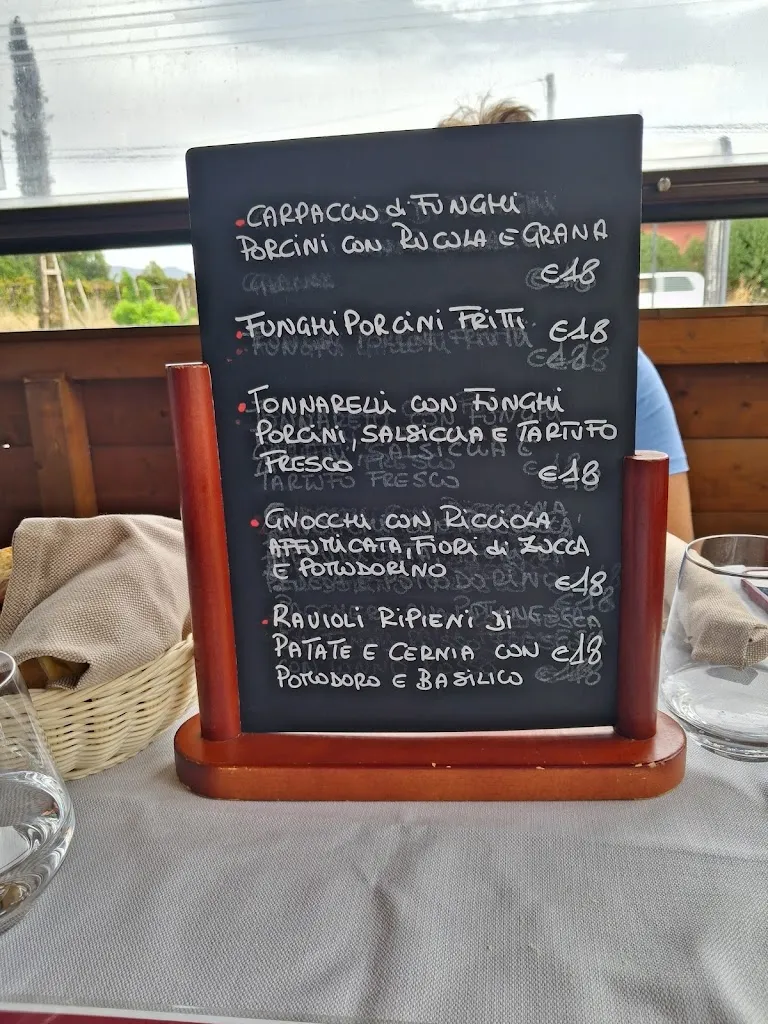 CARPACCIO di FUNGHI
PORCINI CON RUCOLA E GRANA
€18
FUNGHI PORCINI FRITTI €18
TONNARELLI CON FUNGHI
PORCINI, SALSICCIA E TARTUFO
FRESCO €18
GNOCCHI CON RICCIOLA
AFFUMICATA, FIORI di ZUCCA
E POMODORINO
€18
RAVIOLI RIPIENI DI
PATATE E CERNIA CON €18
POMODORO E BASILICO